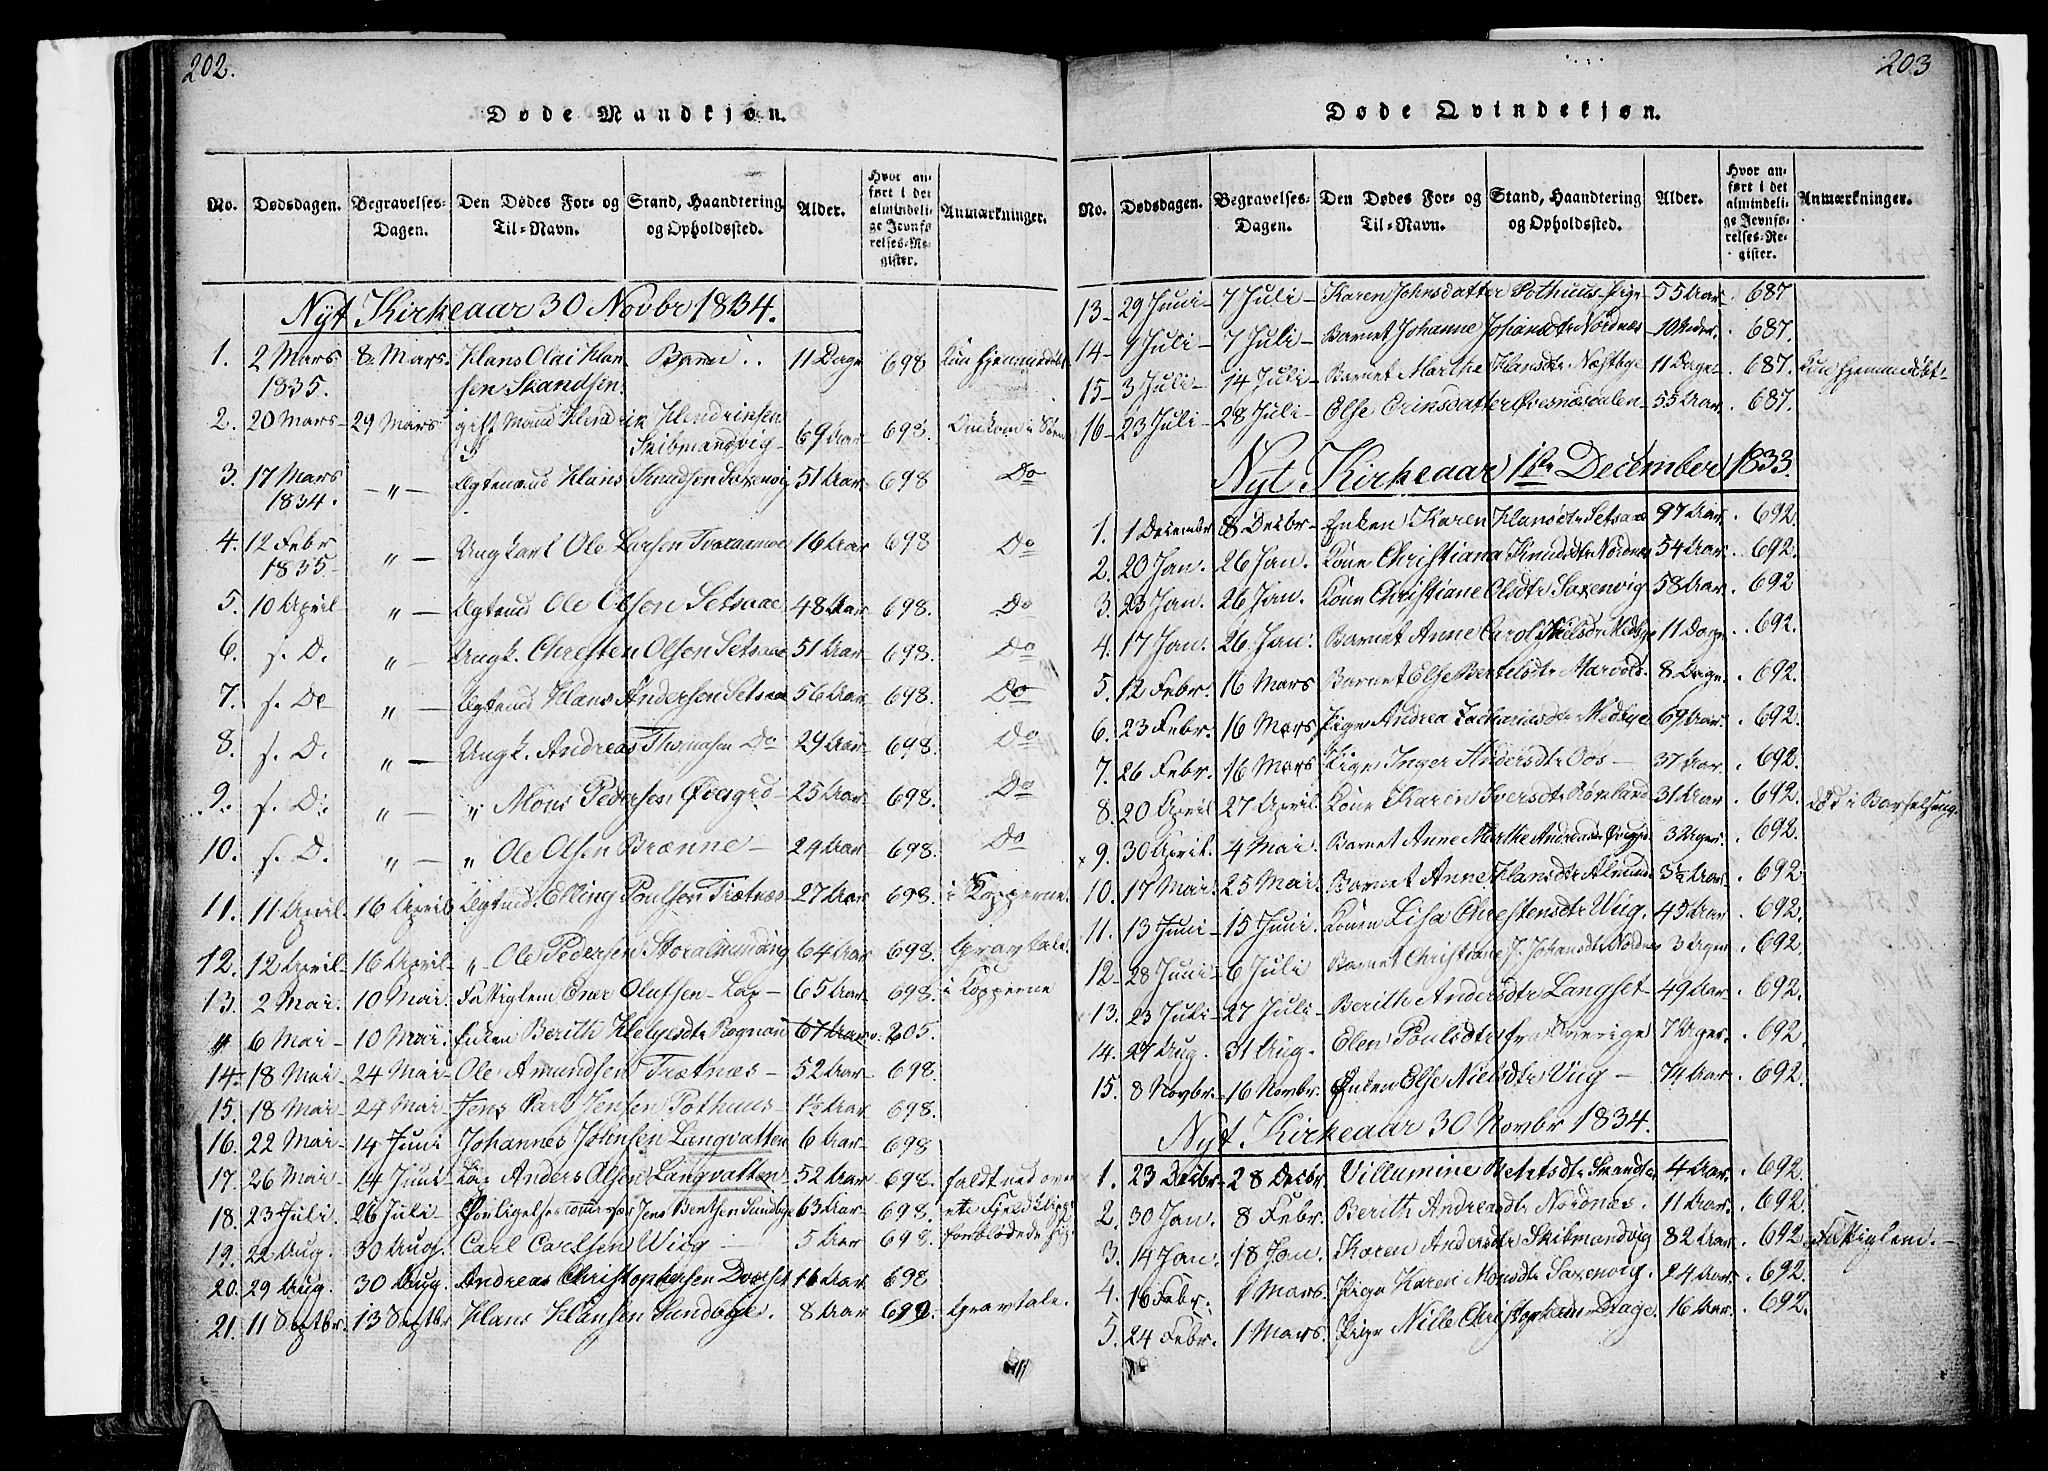 202.
Døde Mandkjøn.
No. Dødsdagen. Begravelses-Dagen. Den Dødes For- og Til-Navn. Stand, Haandtering og Opholdssted. Alder. Hvor anført i det almindelige Jevnførelses-Register. Anmærkninger.
Nyt Kirkeaar 30 Novbr 1834.
1. 2 Mars 1835. 8 Mars. Hans Olai Hansen Skandsen. Barn 11 Dage 698 Kun hjemmedøbt
2. 20 Mars 29 Mars gift Mand Hendrik Hendriksen Skibmandvig 69 Aar 698. Omkom i Søen
3. 17 Mars 1834. " Ægtemand Hans Knudsen Saxenvig 51 Aar 698 Do
4. 12 Febr 1835 " Ungkarl Ole Larsen 16 Aar 698 Do
5. 10 April " Ægtmd Ole Olsen Setsaae 48 Aar 698. Do
6. s. D. " Ungk. Chresten Olsen Setsaae 51 Aar 698. Do
7. s. D. " Ægtmd Hans Andersen Setsaae 56 Aar 698. Do
8. s. D. " Ungk. Andreas Thomasen Do 29 Aar 698. Do
9. s. D. " " Mons Pedersen 25 Aar 698. Do
10. s. D. " " Ole Olsen Brænne 24 Aar 698. Do
11. 11 April. 16 April Ægtmd. Elling Poulsen Trætnes 27 Aar 698. i Kopperne.
12. 12 April 16 April " Ole Pedersen Storalminding 64 Aar 698. Gravtale.
13. 2 Mai. 10 Mai Fattiglem Ener Olufsen Lap 65 Aar 698. i Kopperne
" 6 Mai 10 Mai. Enken Berith Helgesdtr Rognan 67 Aar 205.
14. 18 Mai 24 Mai Ole Amundsen Trætnæs 52 Aar 698.
15. 18 Mai 24 Mai Jens Carl Jensen Pothuus 1½ Aar 698.
16. 22 Mai 14 Juni Johannes Johnsen Langvatten 6 Aar 698
17. 26 Mai 14 Juni Lap Anders Olsen Langvatten 52 Aar 698. faldt ned over
18. 23 Juli. 26 Juli Jens Bentsen Sundbye 63 Aar 698. et Fjeldklipp
19. 22 Aug. 30 Aug. Carl Carlsen Wiig 5 Aar 698. forblødede sig
20. 29 Aug. 30 Aug. Andreas Christophersen 16 Aar 698
21. 11 Septbr. 13 Septbr Hans Hansen Sundbye. 8 Aar 699. Gravtale.
203
Døde Qvindekjøn.
No. Dødsdagen. Begravelses-Dagen. Den Dødes For- og Til-Navn. Stand, Haandtering og Opholdssted. Alder. Hvor anført i det almindelige Jevnførelses-Register. Anmærkninger.
13 29 Juni 7 Juli Karen Johnsdatter Pothuus Pige 55 Aar 687
14 1 Juli 7 Juli Barnet Johanne Johansdtr Nordnæs 687.
15 3 Juli 14 Juli Barnet Marthe Hansdtr Næstbye 11 Dage 687. Kun hjemmedøbt
16 23 Juli 28 Juli Else Eriksdatter Øvesnesdalen 55 Aar 687.
Nyt Kirkeaar 1ste December 1833.
1. 1 Decembr 8 Decbr Enken Karen Hansdtr Setsaae 97 Aar. 692.
2. 20 Jan. 26 Jan. Kone Christiana Knudsdtr Nordnæs 54 Aar. 692.
3. 23 Jan. 26 Jan. Kone Christiane Olsdtr Saxenvig 58 Aar 692
4. 17 Jan. 26 Jan. Barnet Anne Carol Nielsdtr Medbye 11 Dage. 692.
5. 12 Febr. 16 Mars Barnet Else Bertelsdtr 8 Dage. 692.
6. 23 Febr. 16 Mars Pige Andrea Zachariasdtr Medbye 69 Aar. 692.
7. 26 Febr. 16 Mars Pige Inger Andersdtr Oos 37 Aar. 692.
8. 20 April 27 April. Kone Karen Iversdtr 31 Aar. 692. Død i Barselseng.
9. 30 April. 4 Mai. Barnet Anne Marthe 3 Uger. 692.
10. 17 Mai 25 Mai Barnet Anne Hansdtr 3½ Aar. 692.
11. 13 Juni 15 Juni Konen Lisa Chrestensdtr Wiig. 45 Aar. 692.
12. 28 Juni 6 Juli Barnet Christiane J. Johansdtr Nordnæs 3 Uger. 692.
13. 23 Juli 27 Juli Berith Andersdtr Langset 49 Aar. 692.
14. 27 Aug. 31 Aug. Elen Poulsdtr fra Sverige 7 Uger. 692.
15. 8 Novbr. 16 Novbr. Enken Else Nielsdtr Viig 74 Aar. 692.
Nyt Kirkeaar 30 Novbr 1834.
1. 23 Decbr 28 Decbr. Villumine 4 Aar. 692.
2. 30 Jan. 8 Febr. Berith Andreasdtr Nordnæs. 11 Aar. 692.
3. 14 Jan. 18 Jan. Karen Andersdtr Skibmandvig 82 Aar. 692. Fattiglem.
4. 16 Febr. 1 Mars. Pige Karen Monsdtr Saxenvig. 24 Aar. 692.
5. 24 Febr. 1 Mars. Pige 16 Aar. 692.